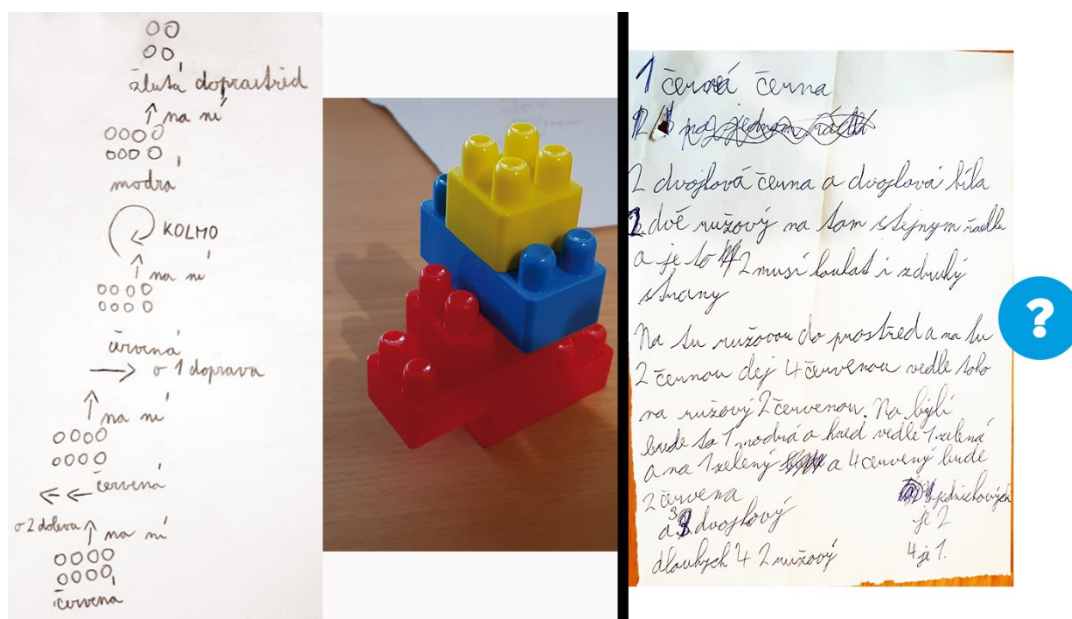 žlutá doprostřed
↑ na ní
modrá
KOLMO
↑ na ní
červená
→ o 1 doprava
↑ na ní
červená
←←
o 2 doleva ↑ na ní
červená
1 černá černa
2 dvojlová černa a dvojlová bíla
2 dvě ružový na tam stejnym řadku
a je to 2 musí koukat i zdruhý
strany
Na tu ružovou do prostřed a na tu
2 černou dej 4 červenou vedle toho
na ružový 2 červenou. Na býlí
bude ta 1 modrá a hned vedle 1 zelená
a na 1 zelený a 4 červený bude
2 červena
a 3 dvojlový
dlouhých 4 2 ružový
jednichových
je 2
4 je 1.
?